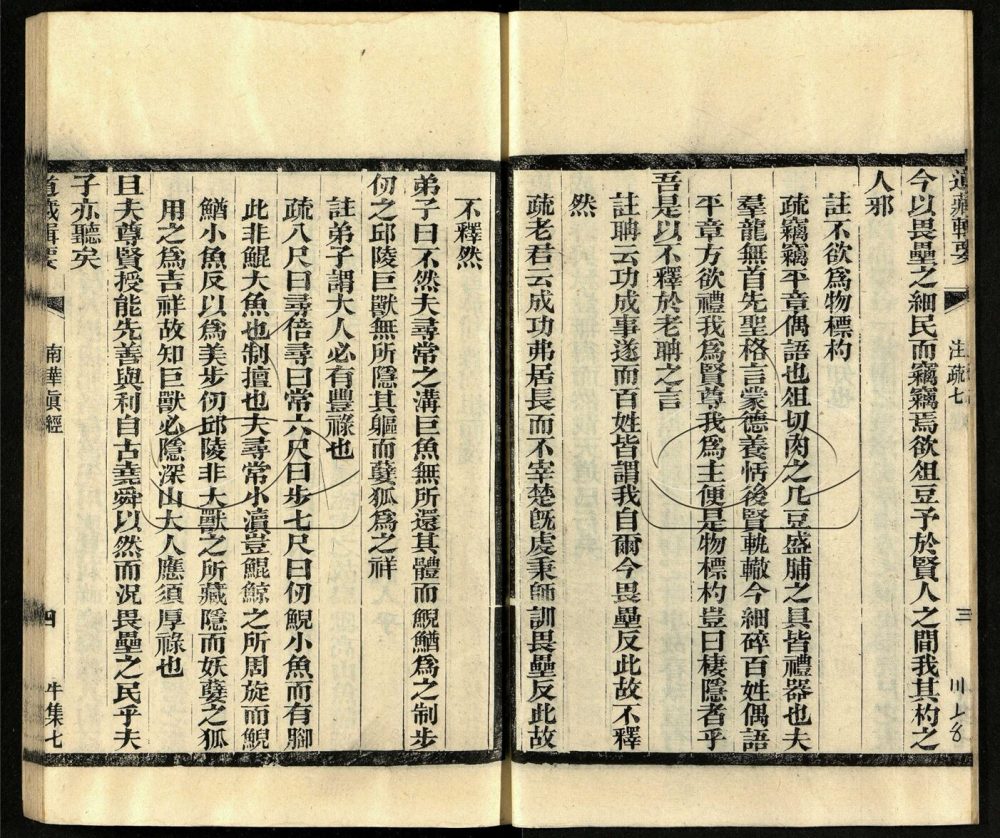 道藏輯要
注疏七
三
川上8
今以畏壘之細民而竊竊焉欲俎豆予於賢人之間我其杓之
人邪
註不欲爲物標杓
疏竊竊平章偶語也俎切肉之几豆盛脯之具皆禮器也夫
羣龍無首先聖格言蒙德養恬後賢軌轍今細碎百姓偶語
平章方欲禮我爲賢尊我爲主便是物標杓豈曰棲隱者乎
吾是以不釋於老聃之言
註聃云功成事遂而百姓皆謂我自爾今畏壘反此故不釋
然
疏老君云成功弗居長而不宰楚旣虔秉師訓畏壘反此故
不釋然
弟子曰不然夫尋常之溝巨魚無所還其體而鯢鰌爲之制步
仞之邱陵巨獸無所隱其軀而㜸狐爲之祥
註弟子謂大人必有豐祿也
疏八尺曰尋倍尋曰常六尺曰步七尺曰仞鯢小魚而有腳
此非鯤大魚也制擅也夫尋常小瀆豈鯤鯨之所周旋而鯢
鰌小魚反以爲美步仞邱陵非大獸之所藏隱而妖㜸之狐
用之爲吉祥故知巨獸必隱深山大人應須厚祿也
且夫尊賢授能先善與利自古堯舜以然而況畏壘之民乎夫
子亦聽矣
道藏輯要
南華眞經
四
牛集七